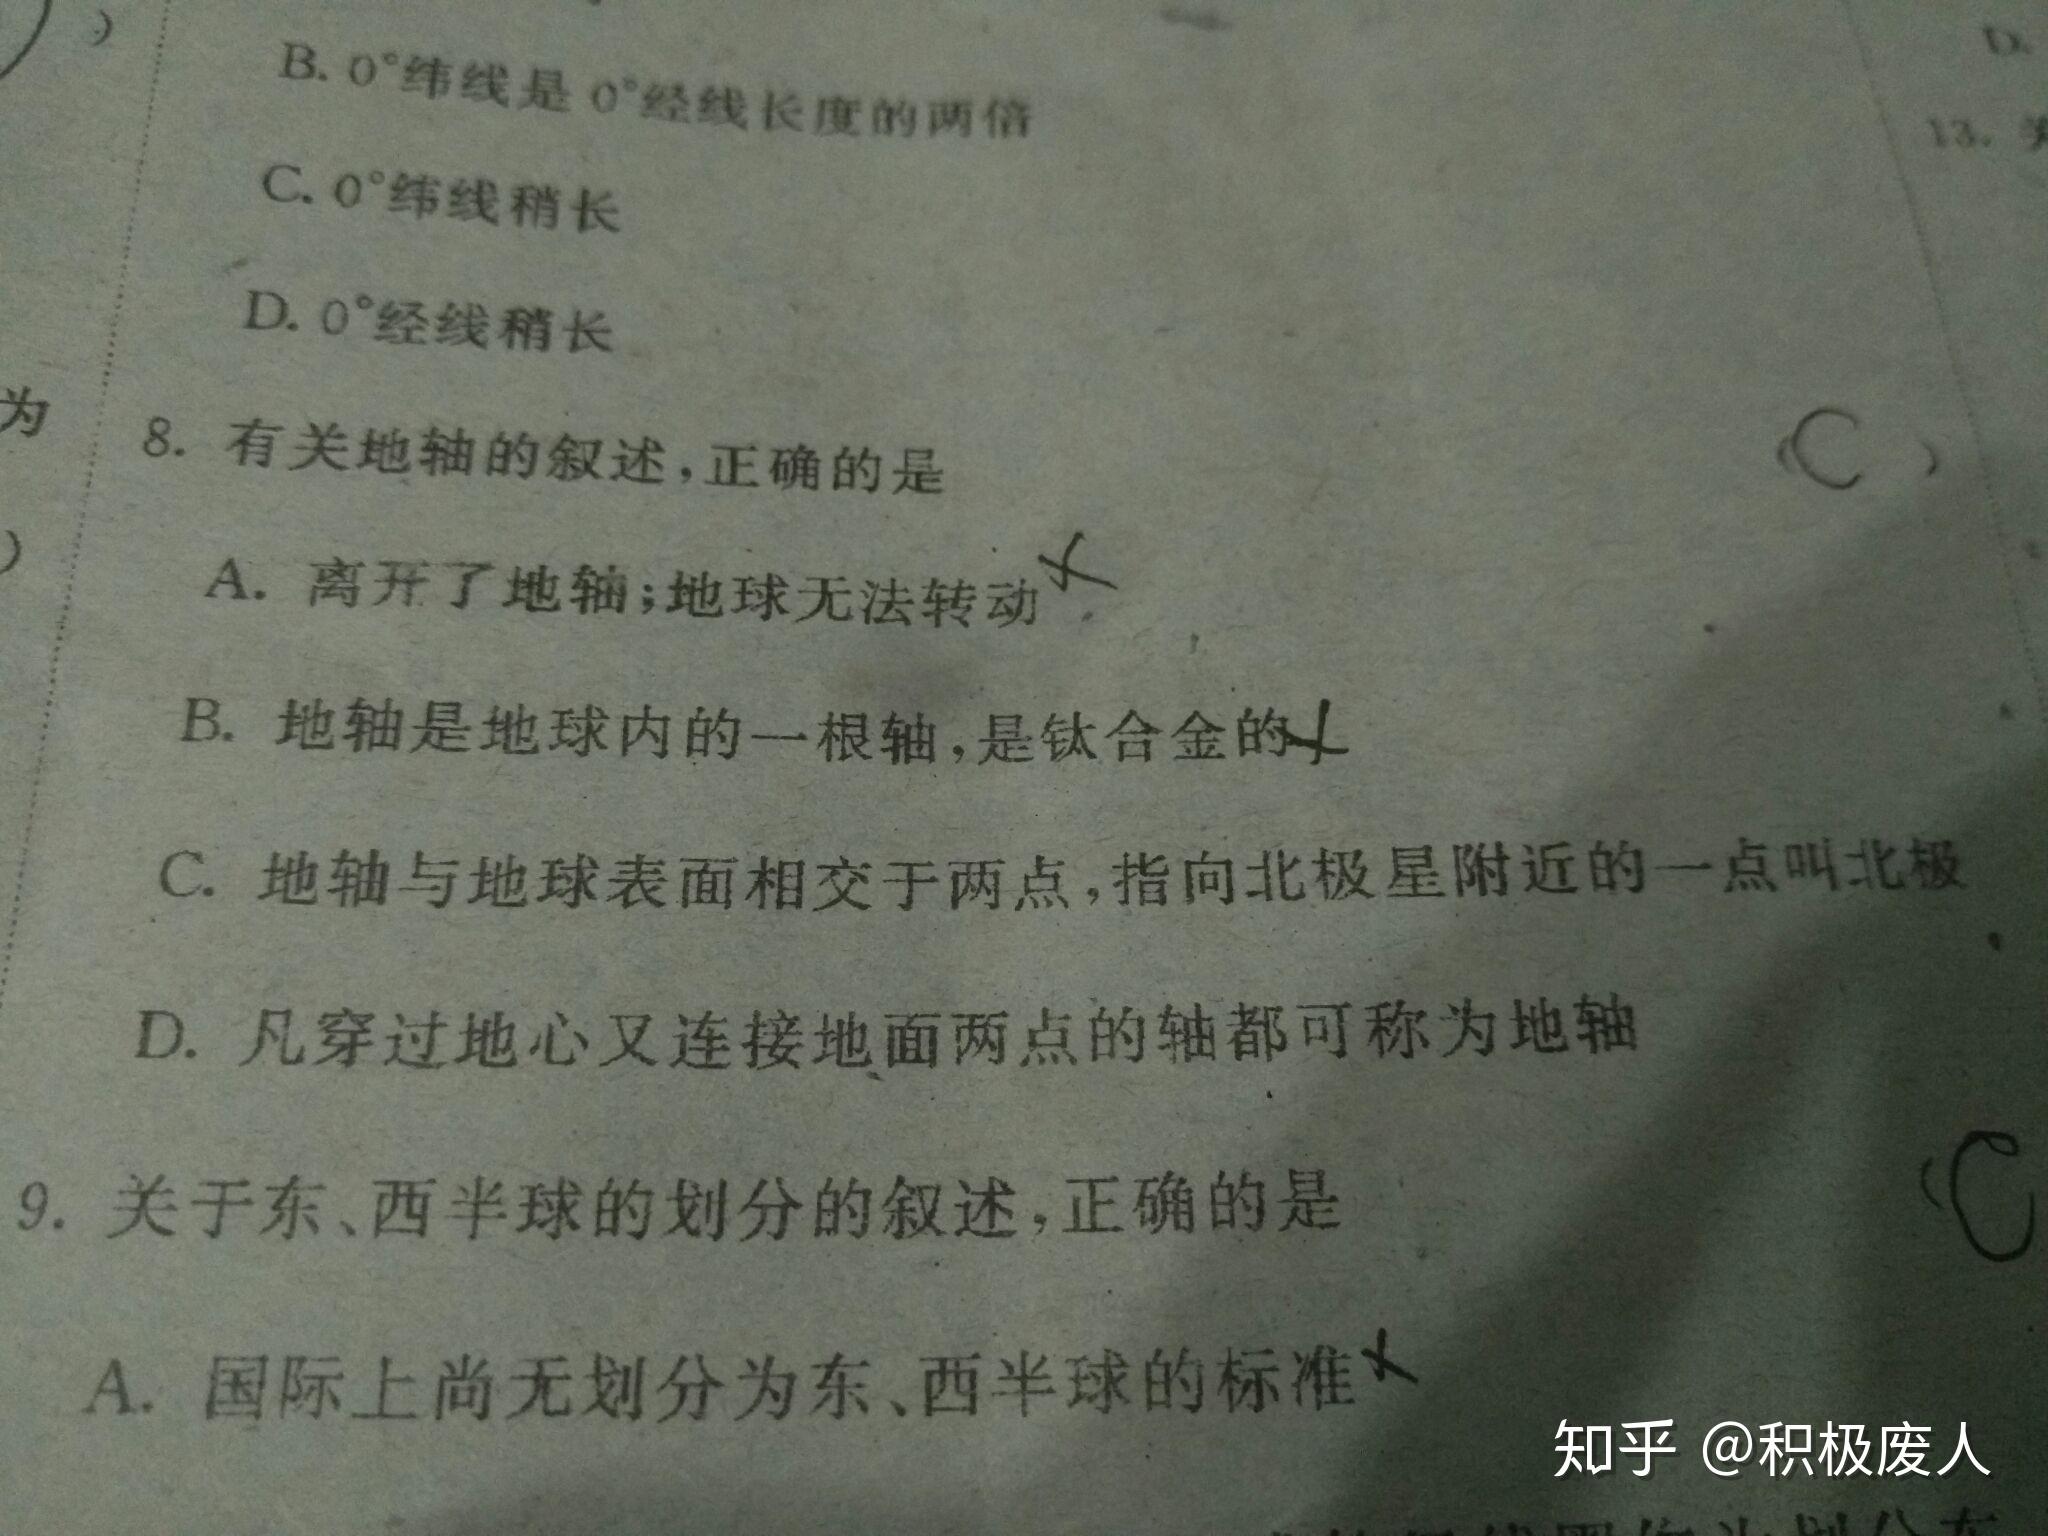 )
B. 0°纬线是 0°经线长度的两倍
D.
13.
C. 0°纬线稍长
D. 0°经线稍长
为
8. 有关地轴的叙述,正确的是 (C)
)
A. 离开了地轴;地球无法转动×
B. 地轴是地球内的一根轴,是钛合金的×
C. 地轴与地球表面相交于两点,指向北极星附近的一点叫北极
D. 凡穿过地心又连接地面两点的轴都可称为地轴
9. 关于东、西半球的划分的叙述,正确的是 (C
A. 国际上尚无划分为东、西半球的标准×
知乎 @积极废人